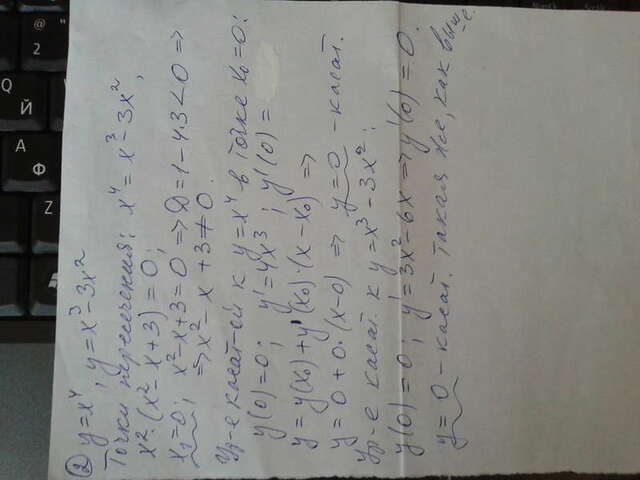 ② y=x⁴, y=x³-3x²
Точки пересечения: x⁴=x³-3x²,
x²·(x²-x+3)=0;
x₁=0; x²-x+3=0 ⇒ D=1-4·3<0 ⇒
⇒ x²-x+3≠0.
Ур-е касат-ой к y=x⁴ в точке x₀=0:
y(0)=0; y'=4x³; y'(0)=
y=y(x₀)+y'(x₀)·(x-x₀) ⇒
y=0+0·(x-0) ⇒ y=0 - касат.
Ур-е касат. к y=x³-3x²:
y(0)=0; y'=3x²-6x ⇒ y'(0)=0.
y=0 - касат. такая же, как выш-е.
@ "
2
Q
Й
A
Ф
Z